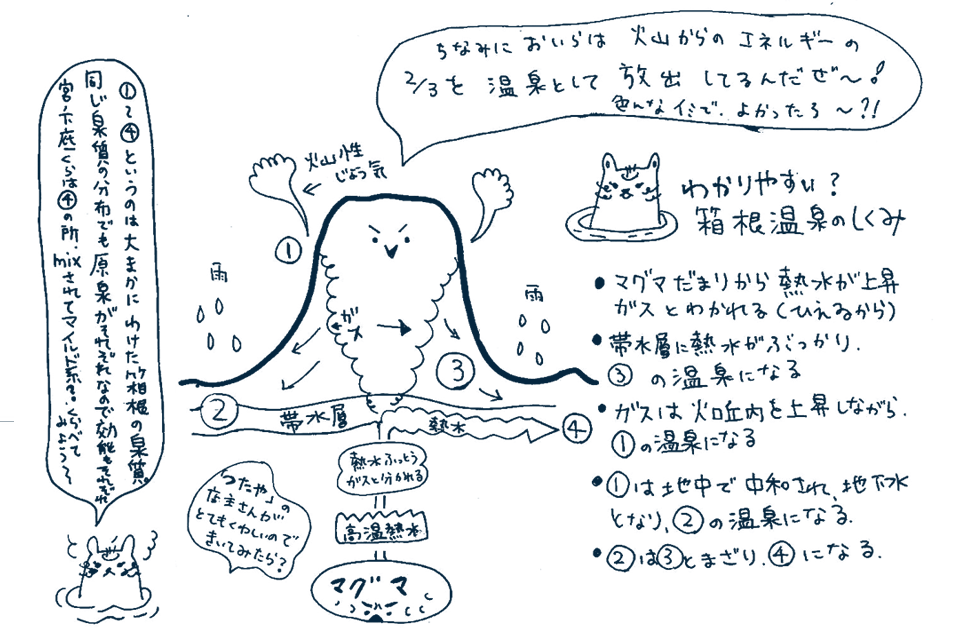 ちなみに おいらは 火山からの エネルギーの
2/3を 温泉として 放出 してるんだぜ〜!
色んなイミで、よかったろ〜?!
わかりやすい?
箱根温泉のしくみ
• マグマだまりから 熱水が上昇
ガスとわかれる (ひえるから)
• 帯水層に熱水がぶっかり、
③ の温泉になる
• ガスは火口丘内を上昇しながら、
①の温泉になる
• ①は地中で中和され、地下水
となり、②の温泉になる.
• ②は③とまざり、④になる.
火山性
じょう気
①
雨
雨
ガス
③
②
帯水層
熱水
④
熱水ふっとう
ガスと分かれる
高温熱水
マグマ
「つたや」の
な主さんが
とてもくわしいので
きいてみたら?
①て④というのは大まかにわけた箱根の泉質。
同じ泉質の分布でも原泉がそれぞれなので効能もそれぞれ
宮ノ下底くらは④の所.mixされてマイルド系?。くらべて
みよう〜